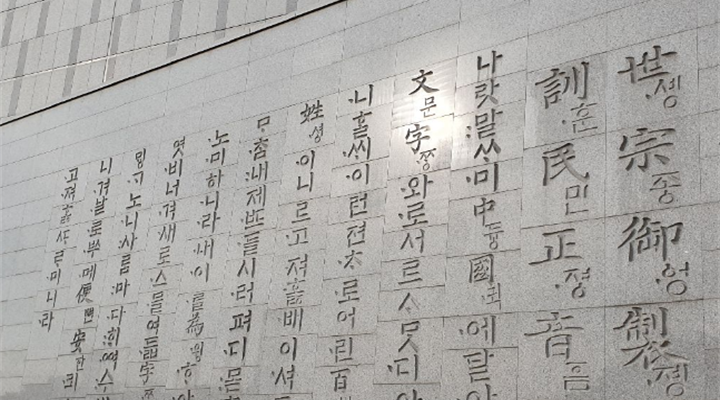 世솅宗종御엉製졩
訓훈民민正졍音ᅙᅳᆷ
나랏말ᄊᆞ미中듕國귁에달아
文문字ᄍᆞᆼ와로서르ᄉᆞᄆᆞᆺ디아
니ᄒᆞᆯᄊᆡ이런젼ᄎᆞ로어린百
姓셩이니르고져ᄒᆞᇙ배이셔
ᄆᆞᄎᆞᆷ내제ᄠᅳ들시러펴디몯
노미하니라내이ᄅᆞᆯ為윙ᄒᆞ야
엿비너겨새로스믈여듧字ᄍᆞᆼ
ᄆᆡᇰᄀᆞ노니사ᄅᆞᆷ마다ᄒᆡᅇᅧ수
니겨날로ᄡᅮ메便뼌安ᅙᅡᆫ킈
고져ᄒᆞᇙᄯᆞᄅᆞ미니라